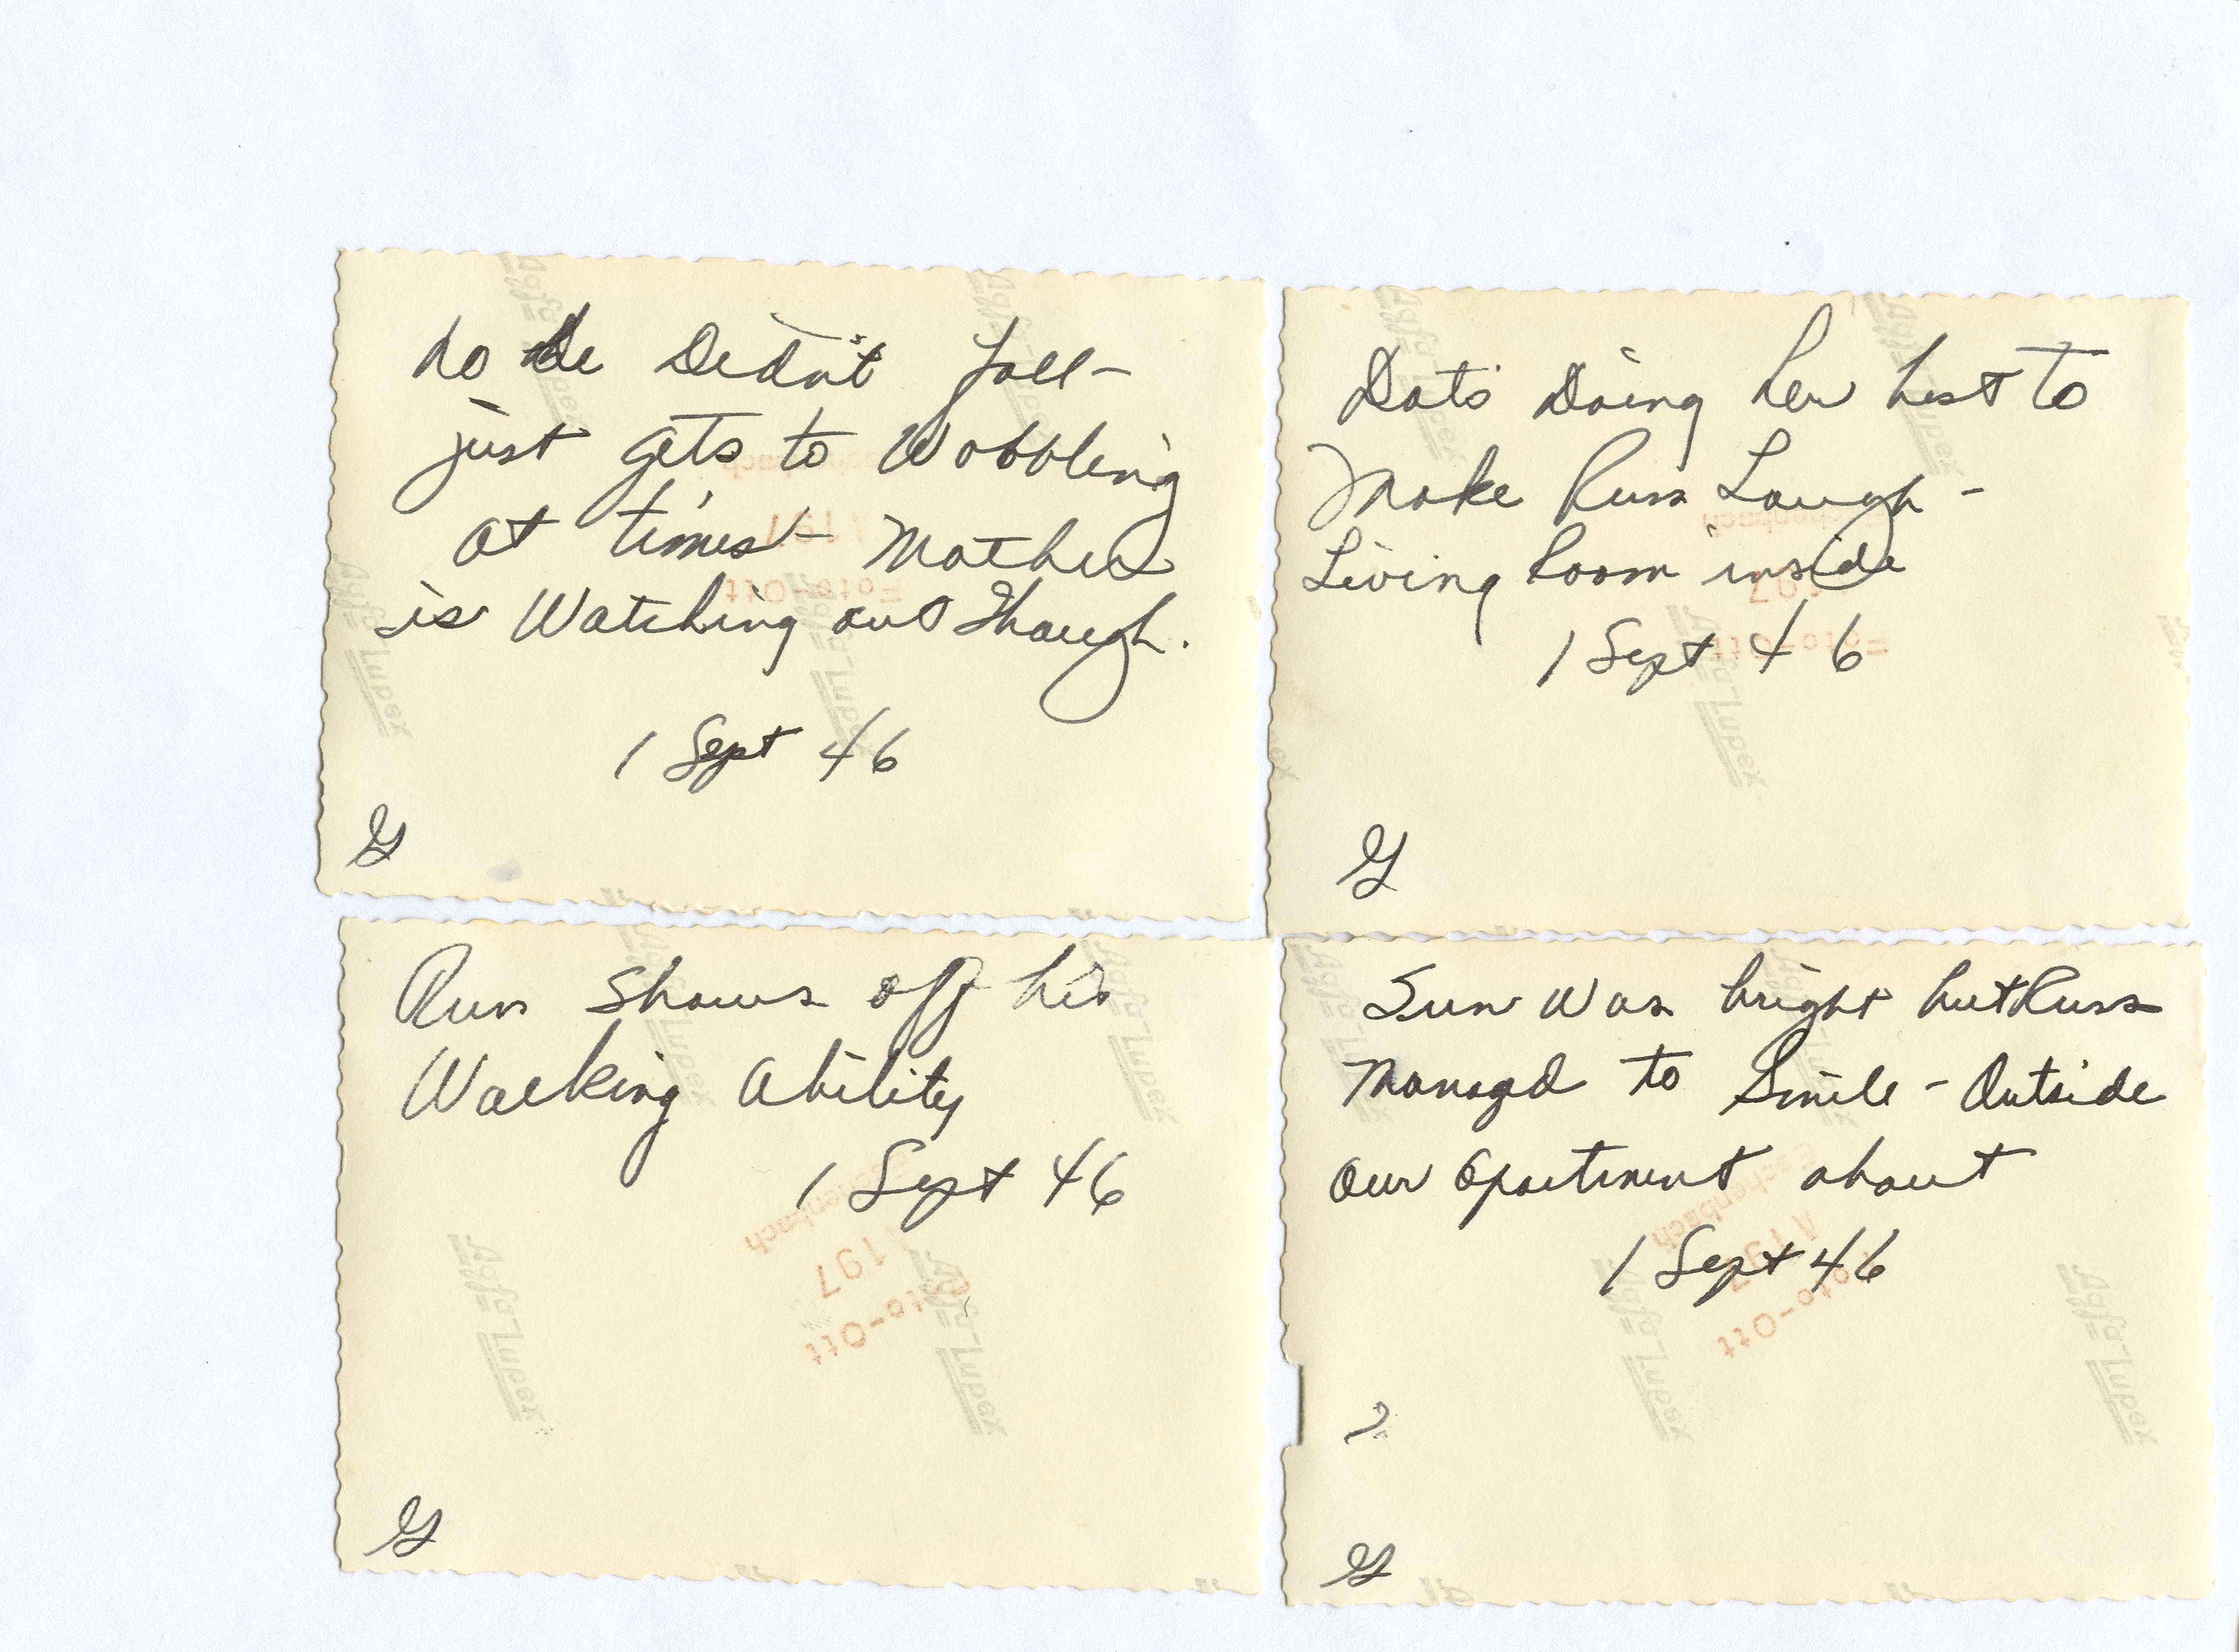 No He Didn't fall -
just gets to Wobbling
at times - Mother
is Watching out Though.
1 Sept 46
G
Dots Doing her best to
Make Russ Laugh -
Living Room inside
1 Sept 46
G
Russ Shows off his
Walking Ability
1 Sept 46
197
Foto-Ott
G
Sun Was bright but Russ
Managd to Smile - Outside
our apartment about
1 Sept 46
Foto-Ott
G
Agfa-Lupex